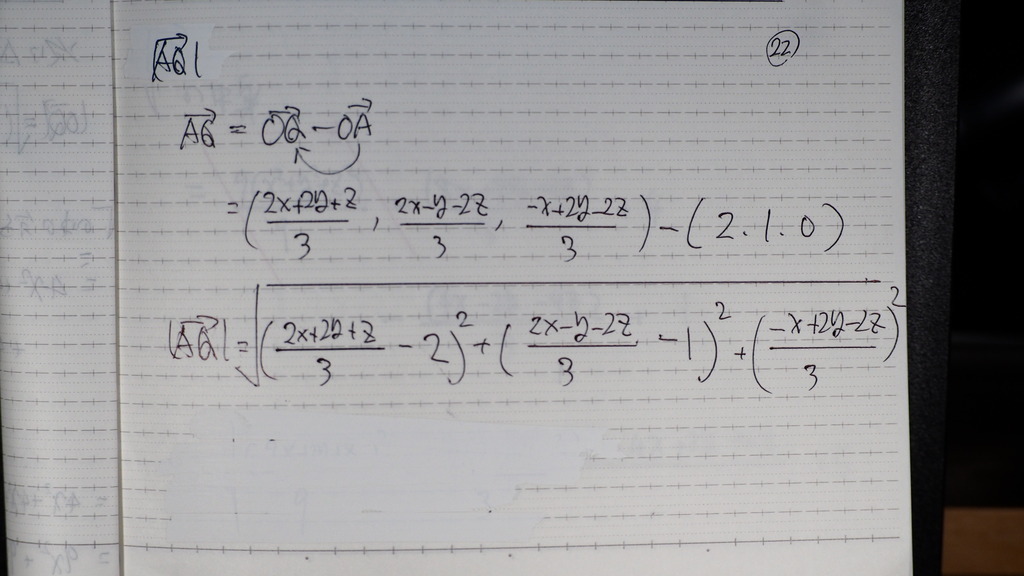 |AQ→|
㉒
AQ→ = OQ→ - OA→
= ( (2x+2y+z)/3 , (2x-y-2z)/3 , (-x+2y-2z)/3 ) - ( 2 . 1 . 0 )
|AQ→| = √( ( (2x+2y+z)/3 - 2 )² + ( (2x-y-2z)/3 - 1 )² + ( (-x+2y-2z)/3 )² )